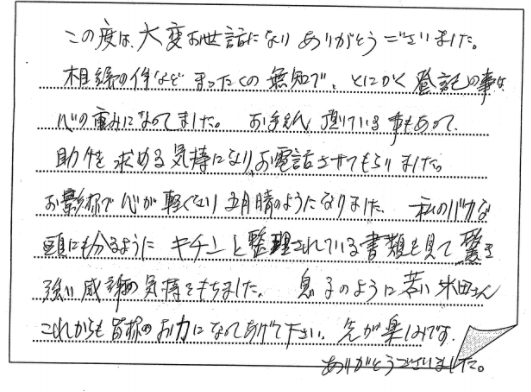 この度は、大変お世話になりありがとうございました。
相続の件など まったくの無知で、とにかく登記の事は
心の重みになってました。 お手えん頂いている事もあって、
助けを求める気持になり、お電話させてもらいました。
お影様で心が軽くなり五月晴のようになりました。 私のバカな
頭にも分るように キチンと整理されている書類を見て 驚き
強い感謝の気持をもちました。 息子のように若い 米田さん
これからも皆様のお力になってあげて下さい。先が楽しみです。
ありがとうございました。